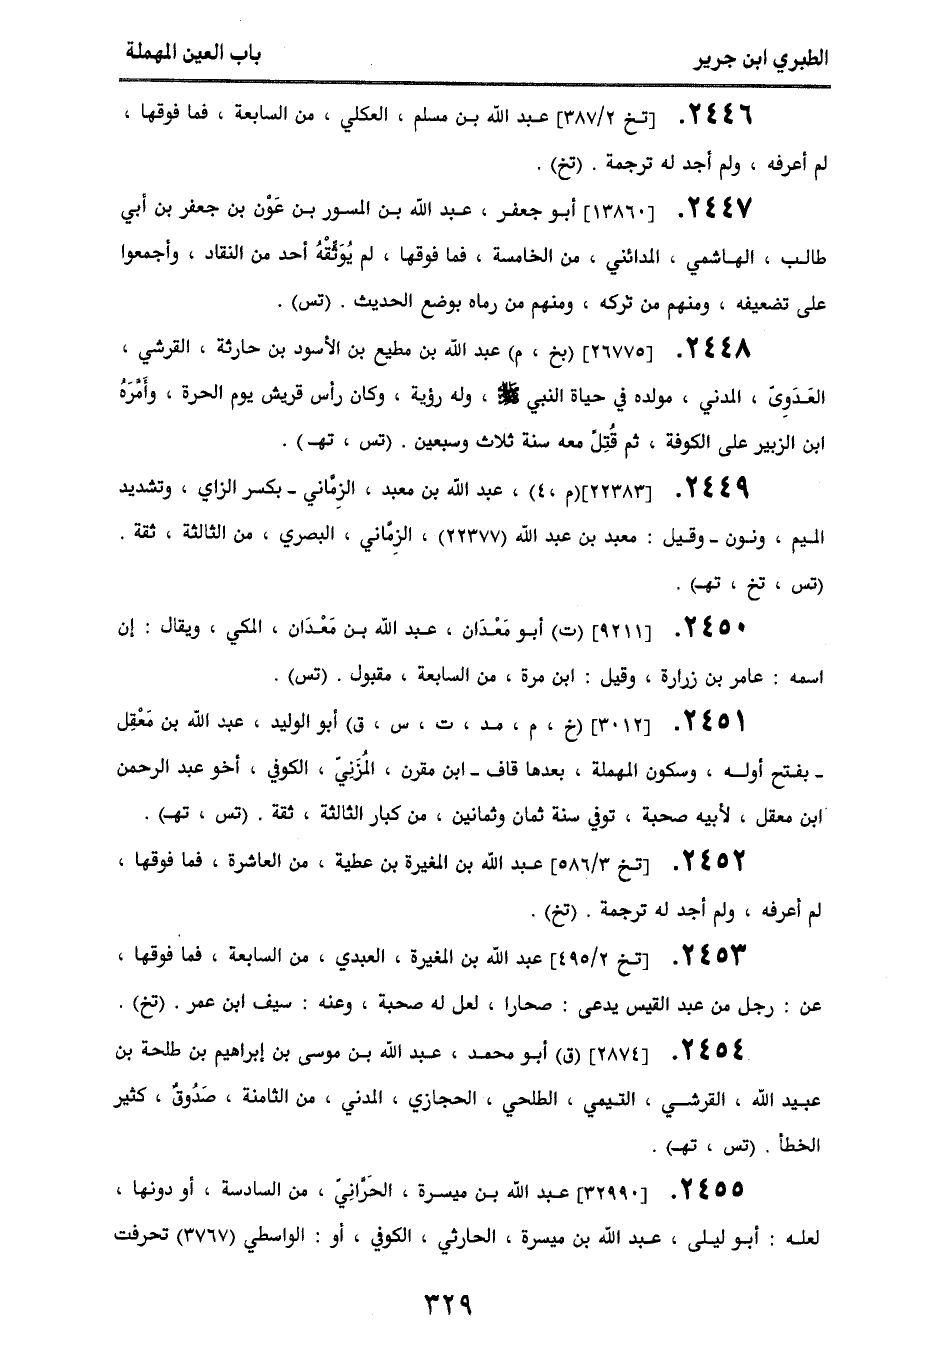 الطبري ابن جرير
باب العين المهملة
٢٤٤٦. [تخ ٣٨٧/٢] عبد الله بن مسلم ، العكلي ، من السابعة ، فما فوقها ،
لم أعرفه ، ولم أجد له ترجمة . (تخ) .
٢٤٤٧. [١٣٨٦٠] أبو جعفر ، عبد الله بن المسور بن عَوْن بن جعفر بن أبي
طالب ، الهاشمي ، المدائني ، من الخامسة ، فما فوقها ، لم يُوَثِّقْهُ أحد من النقاد ، وأجمعوا
على تضعيفه ، ومنهم من تركه ، ومنهم من رماه بوضع الحديث . (تس) .
٢٤٤٨. [٢٦٧٧٥] (بخ ، م) عبد الله بن مطيع بن الأسود بن حارثة ، القرشي ،
العَدَوِيّ ، المدني ، مولده في حياة النبي ﷺ ، وله رؤية ، وكان رأس قريش يوم الحرة ، وأَمَّرَهُ
ابن الزبير على الكوفة ، ثم قُتِلَ معه سنة ثلاث وسبعين . (تس ، تهـ) .
٢٤٤٩. [٢٢٣٨٣](م ،٤) ، عبد الله بن معبد ، الزِمَّاني ـ بكسر الزاي ، وتشديد
الميم ، ونون ـ وقيل : معبد بن عبد الله (٢٢٣٧٧) ، الزِمَّاني ، البصري ، من الثالثة ، ثقة .
(تس ، تخ ، تهـ) .
٢٤٥٠. [٩٢١١] (ت) أبو مَعْدَان ، عبد الله بن مَعْدَان ، المكي ، ويقال : إن
اسمه : عامر بن زرارة ، وقيل : ابن مرة ، من السابعة ، مقبول . (تس) .
٢٤٥١. [٣٠١٢] (خ ، م ، مد ، ت ، س ، ق) أبو الوليد ، عبد الله بن مَعْقِل
ـ بفتح أوله ، وسكون المهملة ، بعدها قاف ـ ابن مقرن ، المُزَنِيّ ، الكوفي ، أخو عبد الرحمن
ابن معقل ، لأبيه صحبة ، توفي سنة ثمان وثمانين ، من كبار الثالثة ، ثقة . (تس ، تهـ) .
٢٤٥٢. [تخ ٥٨٦/٣] عبد الله بن المغيرة بن عطية ، من العاشرة ، فما فوقها ،
لم أعرفه ، ولم أجد له ترجمة . (تخ) .
٢٤٥٣. [تخ ٤٩٥/٢] عبد الله بن المغيرة ، العبدي ، من السابعة ، فما فوقها ،
عن : رجل من عبد القيس يدعى : صحارا ، لعل له صحبة ، وعنه : سيف ابن عمر . (تخ) .
٢٤٥٤. [٢٨٧٤] (ق) أبو محمد ، عبد الله بن موسى بن إبراهيم بن طلحة بن
عبيد الله ، القرشي ، التيمي ، الطلحي ، الحجازي ، المدني ، من الثامنة ، صَدُوقٌ ، كثير
الخطأ . (تس ، تهـ) .
٢٤٥٥. [٣٢٩٩٠] عبد الله بن ميسرة ، الحَرَّانِيّ ، من السادسة ، أو دونها ،
لعله : أبو ليلى ، عبد الله بن ميسرة ، الحارثي ، الكوفي ، أو : الواسطي (٣٧٦٧) تحرفت
٣٢٩